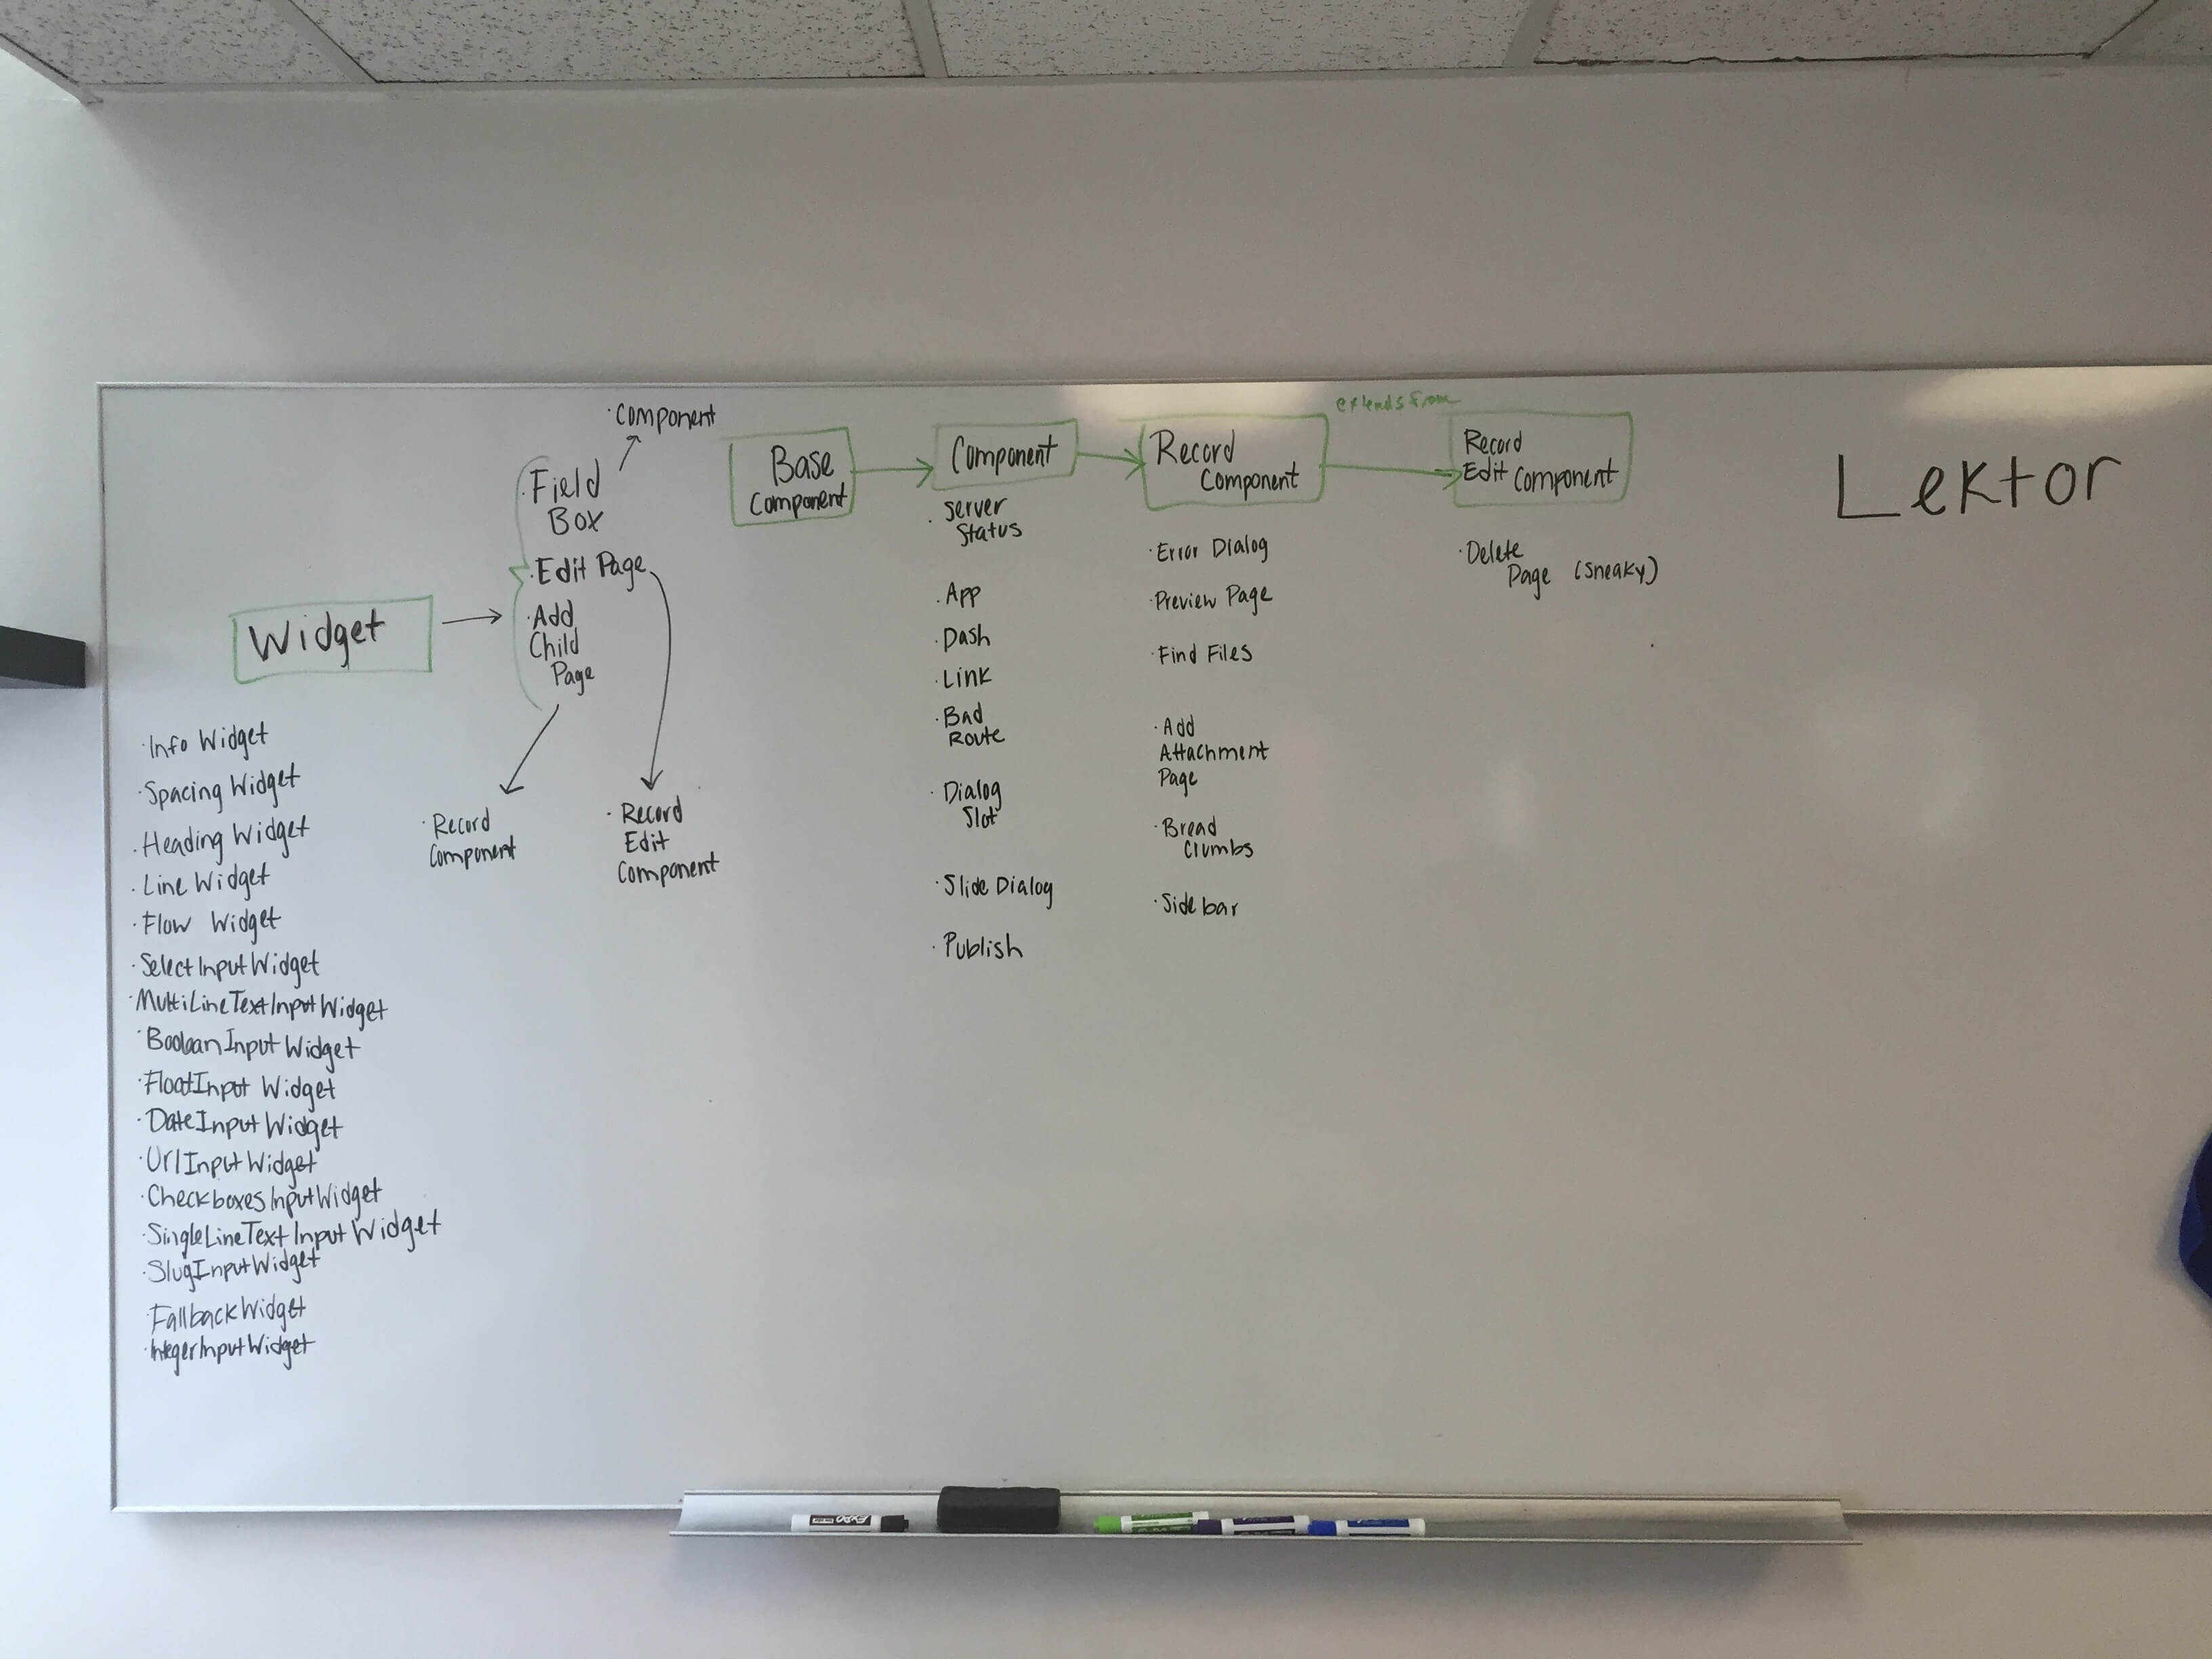 Widget
· Info Widget
· Spacing Widget
· Heading Widget
· Line Widget
· Flow Widget
· SelectInputWidget
· MultiLineTextInputWidget
· BooleanInputWidget
· FloatInput Widget
· DateInputWidget
· UrlInputWidget
· CheckboxesInputWidget
· SingleLineTextInputWidget
· SlugInputWidget
FallbackWidget
· IntegerInputWidget
· Component
· Field
Box
· Edit Page
· Add
Child
Page
· Record
Component
· Record
Edit
Component
Base
Component
Component
· Server
Status
· App
· Dash
· Link
· Bad
Route
· Dialog
Slot
· Slide Dialog
· Publish
Record
Component
· Error Dialog
· Preview Page
· Find Files
· Add
Attachment
Page
· Bread
Crumbs
· Sidebar
extends from
Record
Edit Component
· Delete
Page (Sneaky)
Lektor
EXPO